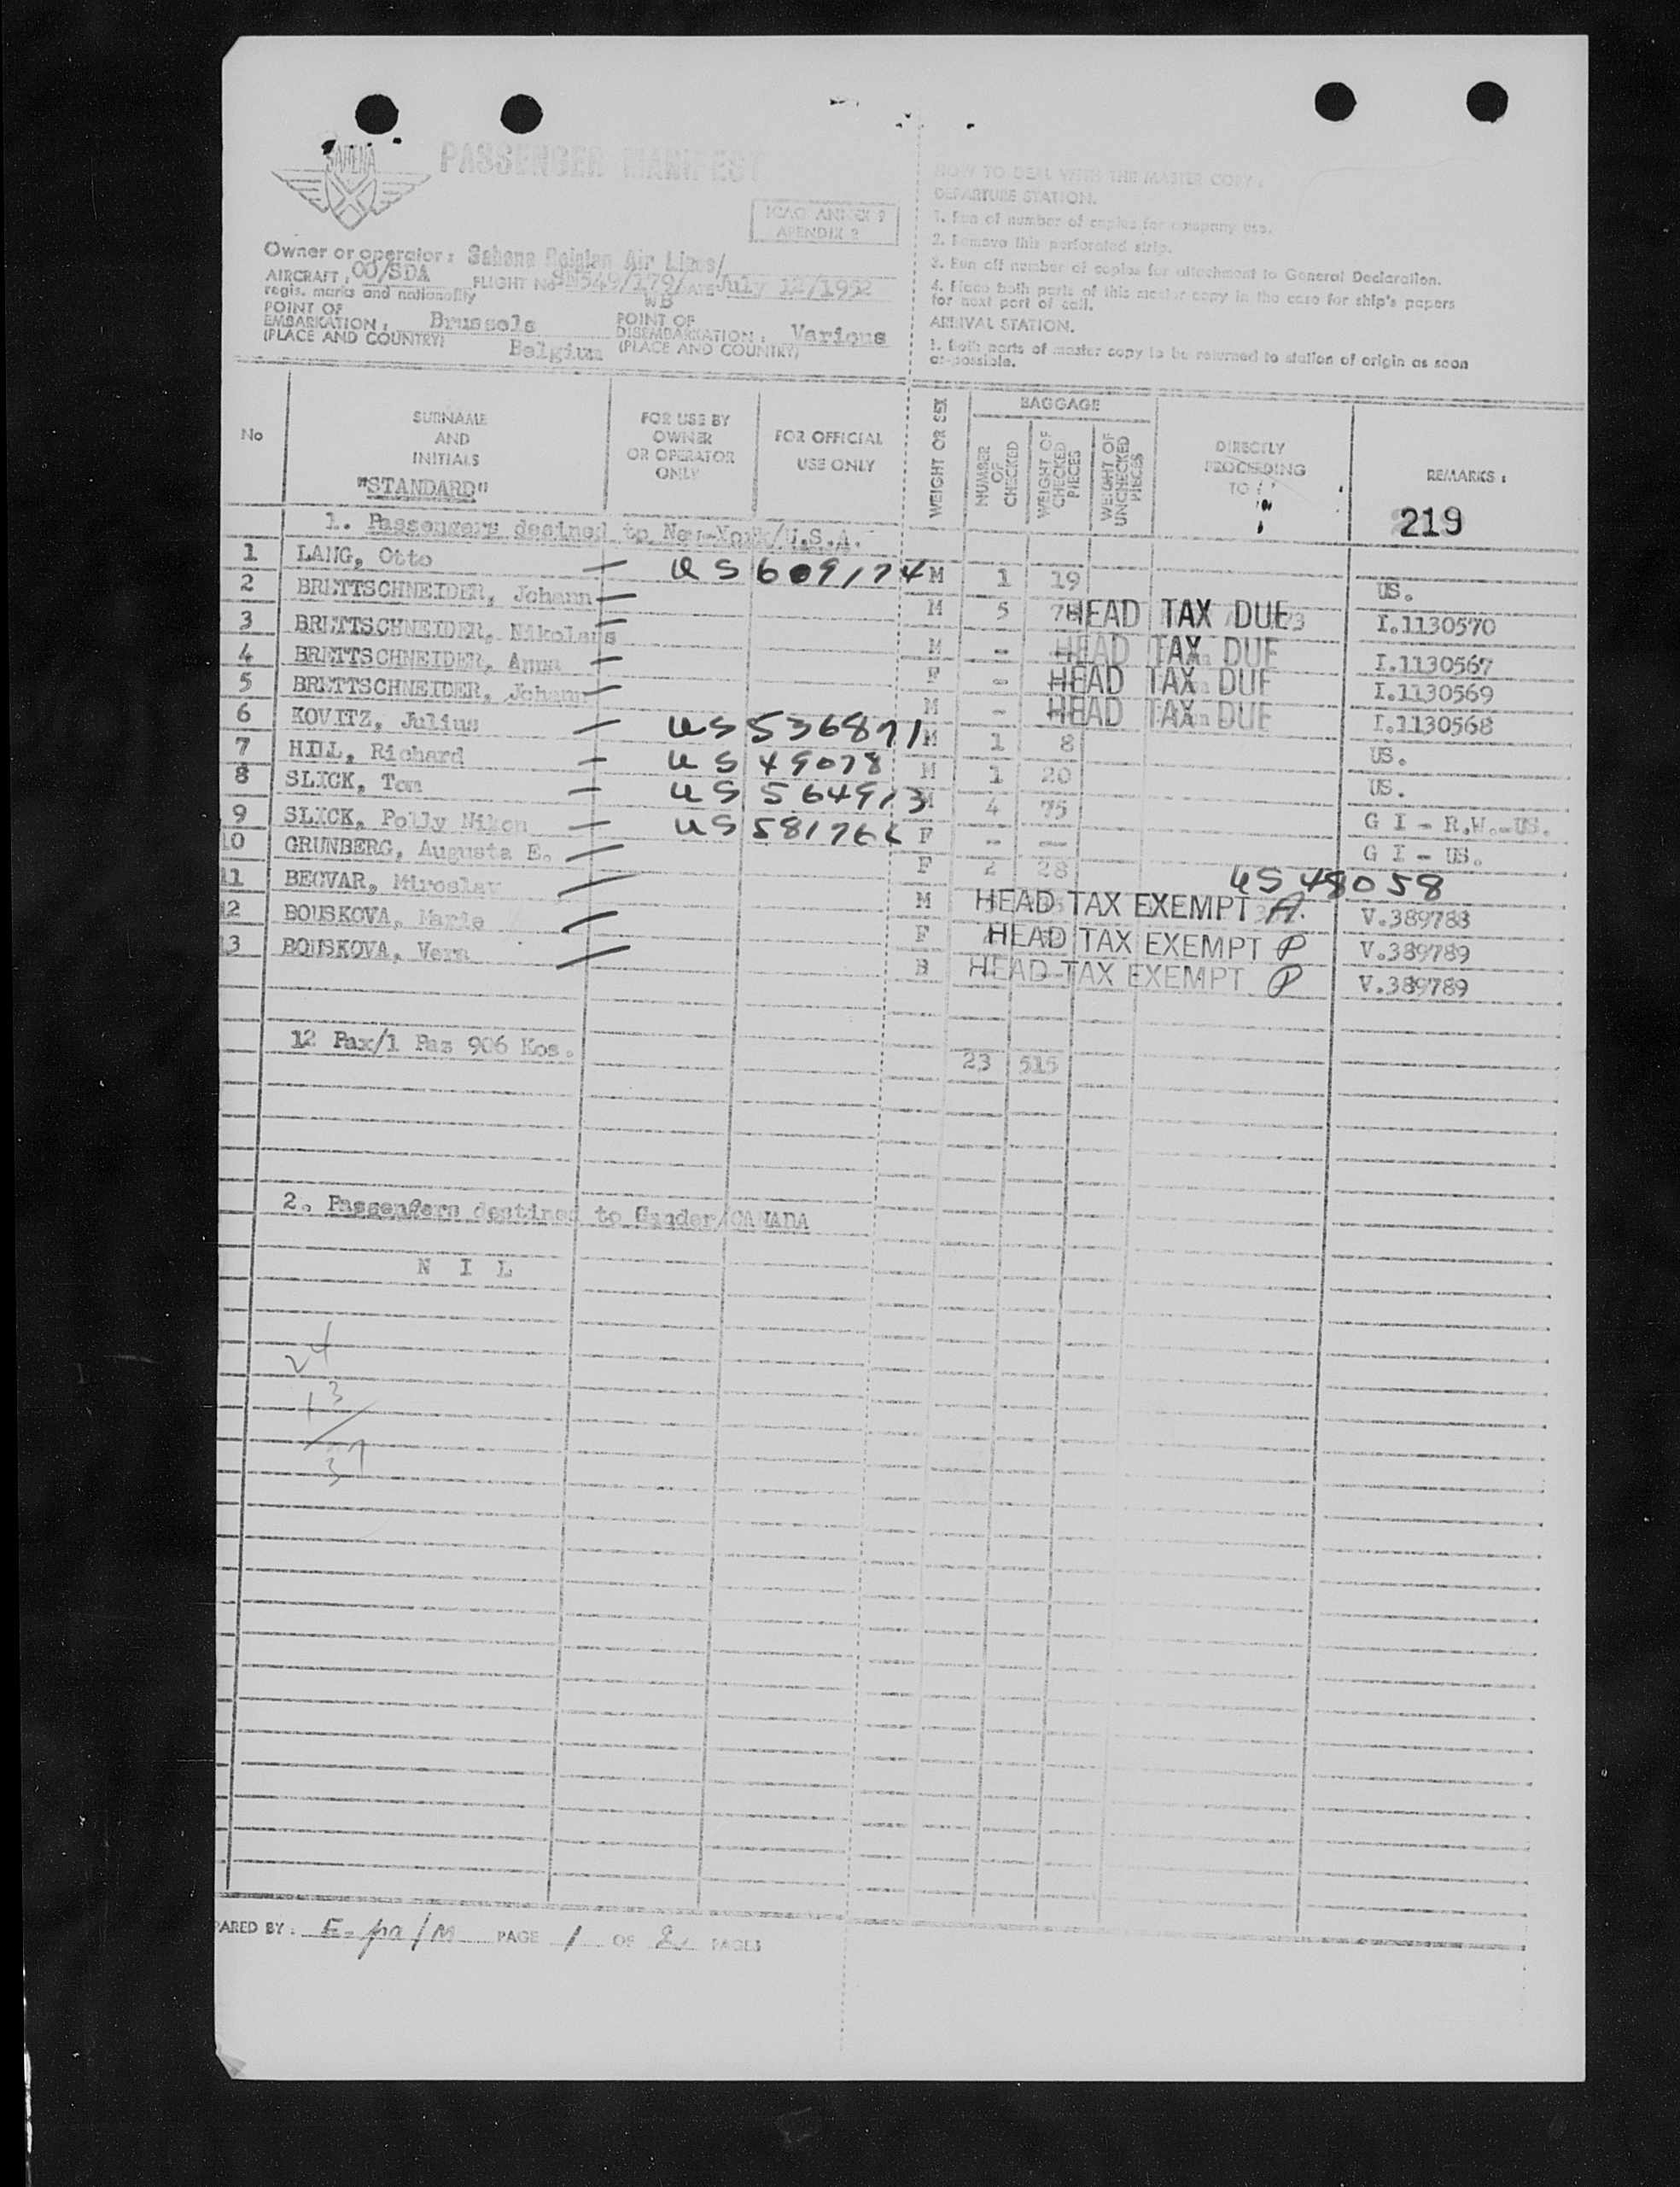 SABENA
PASSENGER MANIFEST
ICAO ANNEX 9
APENDIX 2
Owner or operator : Sabena Belgian Air Lines/
AIRCRAFT : OO/SDA FLIGHT No SN549/179/ DATE July 12/1952
regis. marks and nationality WB
POINT OF EMBARKATION : Brussels
(PLACE AND COUNTRY) Belgium
POINT OF DISEMBARKATION : Various
(PLACE AND COUNTRY)
HOW TO DEAL WITH THE MASTER COPY.
DEPARTURE STATION.
1. Run of number of copies for company use.
2. Remove this perforated strip.
3. Run off number of copies for attachment to General Declaration.
4. Place both parts of this master copy in the case for ship's papers
for next port of call.
ARRIVAL STATION.
1. Both parts of master copy to be returned to station of origin as soon
as possible.
No
SURNAME AND INITIALS
"STANDARD"
FOR USE BY OWNER OR OPERATOR ONLY
FOR OFFICIAL USE ONLY
WEIGHT OR SEX
BAGGAGE
NUMBER OF CHECKED
WEIGHT OF CHECKED PIECES
WEIGHT OF UNCHECKED PIECES
DIRECTLY PROCEEDING TO :
REMARKS :
219
1. Passengers desined to New-York/U.S.A.
1 LANG, Otto — US 609174 M 1 19 US.
2 BRETTSCHNEIDER, Johann — M 5 78 HEAD TAX DUE I.1130570
3 BRETTSCHNEIDER, Nikolaus — M - HEAD TAX DUE I.1130567
4 BRETTSCHNEIDER, Anna — F - HEAD TAX DUE I.1130569
5 BRETTSCHNEIDER, Johann — M - HEAD TAX DUE I.1130568
6 KOVITZ, Julius — US 536871 M 1 8 US.
7 HILL, Richard — US 49078 M 1 20 US.
8 SLICK, Tom — US 564913 M 4 75 G I - R.W.-US.
9 SLICK, Polly Nixon — US 581766 F - -- G I - US.
10 GRUNBERG, Augusta E. — F 2 28 US 48058
11 BECVAR, Miroslav — M HEAD TAX EXEMPT A. V.389788
12 BOUSKOVA, Marie — F HEAD TAX EXEMPT P V.389789
13 BOUSKOVA, Vera — B HEAD TAX EXEMPT P V.389789
12 Pax/1 Pas 906 Kos. 23 515
2. Passengers destined to Gander/CANADA
N I L
24
13
37
PARED BY : PAGE 1 OF 2 PAGES